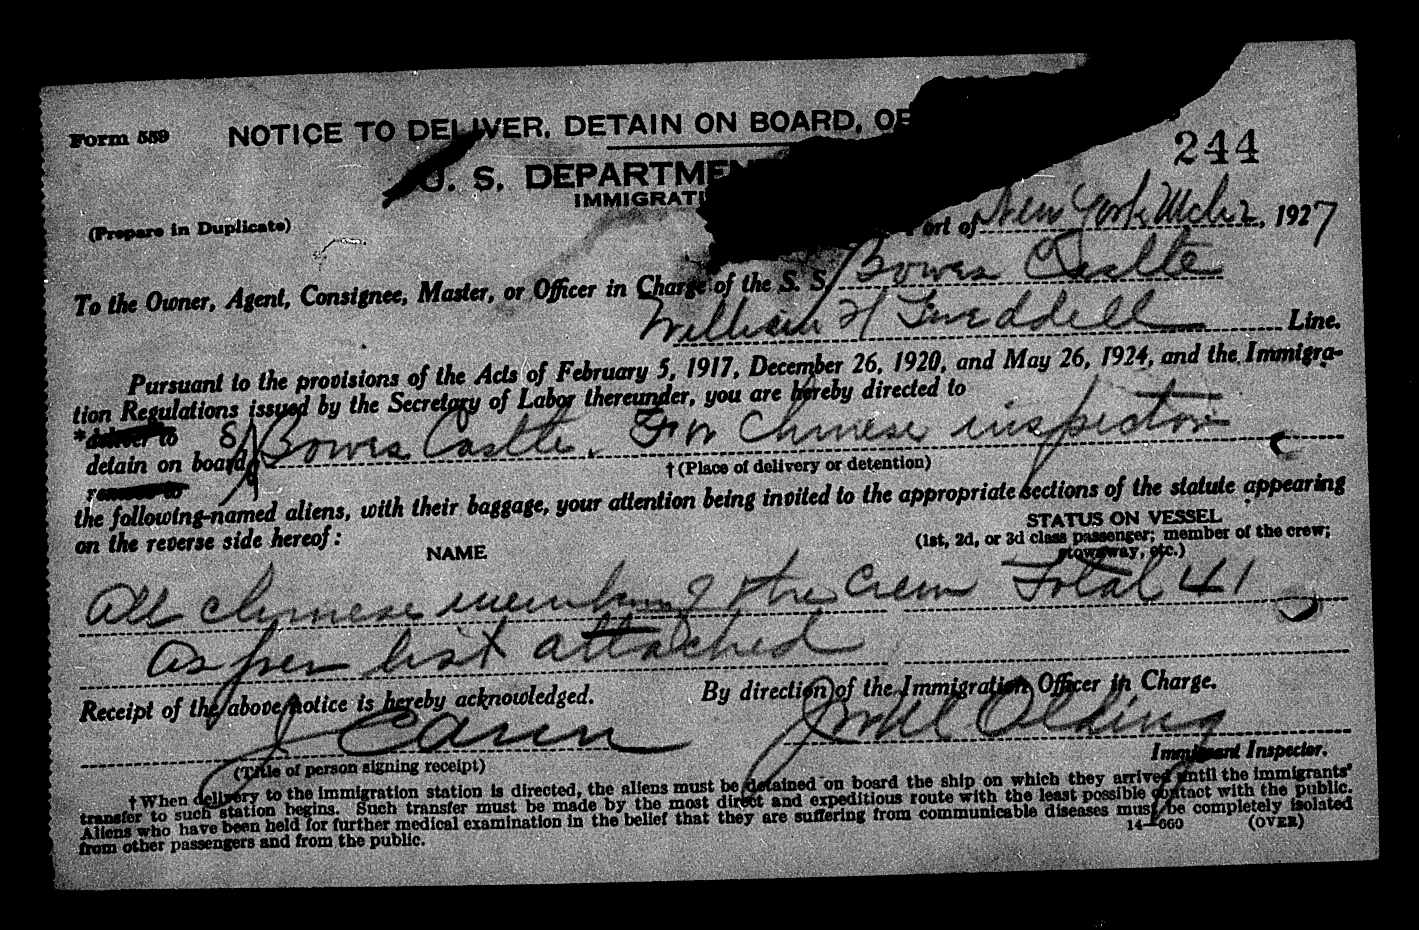 Form 559 NOTICE TO DELIVER, DETAIN ON BOARD, OR
244
U. S. DEPARTMEN
IMMIGRATI
(Prepare in Duplicate)
Port of New York Mch 2, 1927
To the Owner, Agent, Consignee, Master, or Officer in Charge of the S. S. Bowes Castle
William H Line.
Pursuant to the provisions of the Acts of February 5, 1917, December 26, 1920, and May 26, 1924, and the Immigra-
tion Regulations issued by the Secretary of Labor thereunder, you are hereby directed to
*deliver to
detain on board S/S Bowes Castle. For Chinese inspector
remove to
† (Place of delivery or detention)
the following-named aliens, with their baggage, your attention being invited to the appropriate sections of the statute appearing
on the reverse side hereof:
NAME
STATUS ON VESSEL
(1st, 2d, or 3d class passenger; member of the crew;
stowaway, etc.)
All Chinese members of the crew Total 41
as per list attached
Receipt of the above notice is hereby acknowledged.
By direction of the Immigration Officer in Charge.
J
Olding
(Title of person signing receipt)
Immigrant Inspector.
† When delivery to the immigration station is directed, the aliens must be detained on board the ship on which they arrived until the immigrants'
transfer to such station begins. Such transfer must be made by the most direct and expeditious route with the least possible contact with the public.
Aliens who have been held for further medical examination in the belief that they are suffering from communicable diseases must be completely isolated
from other passengers and from the public.
14—660 (OVER)